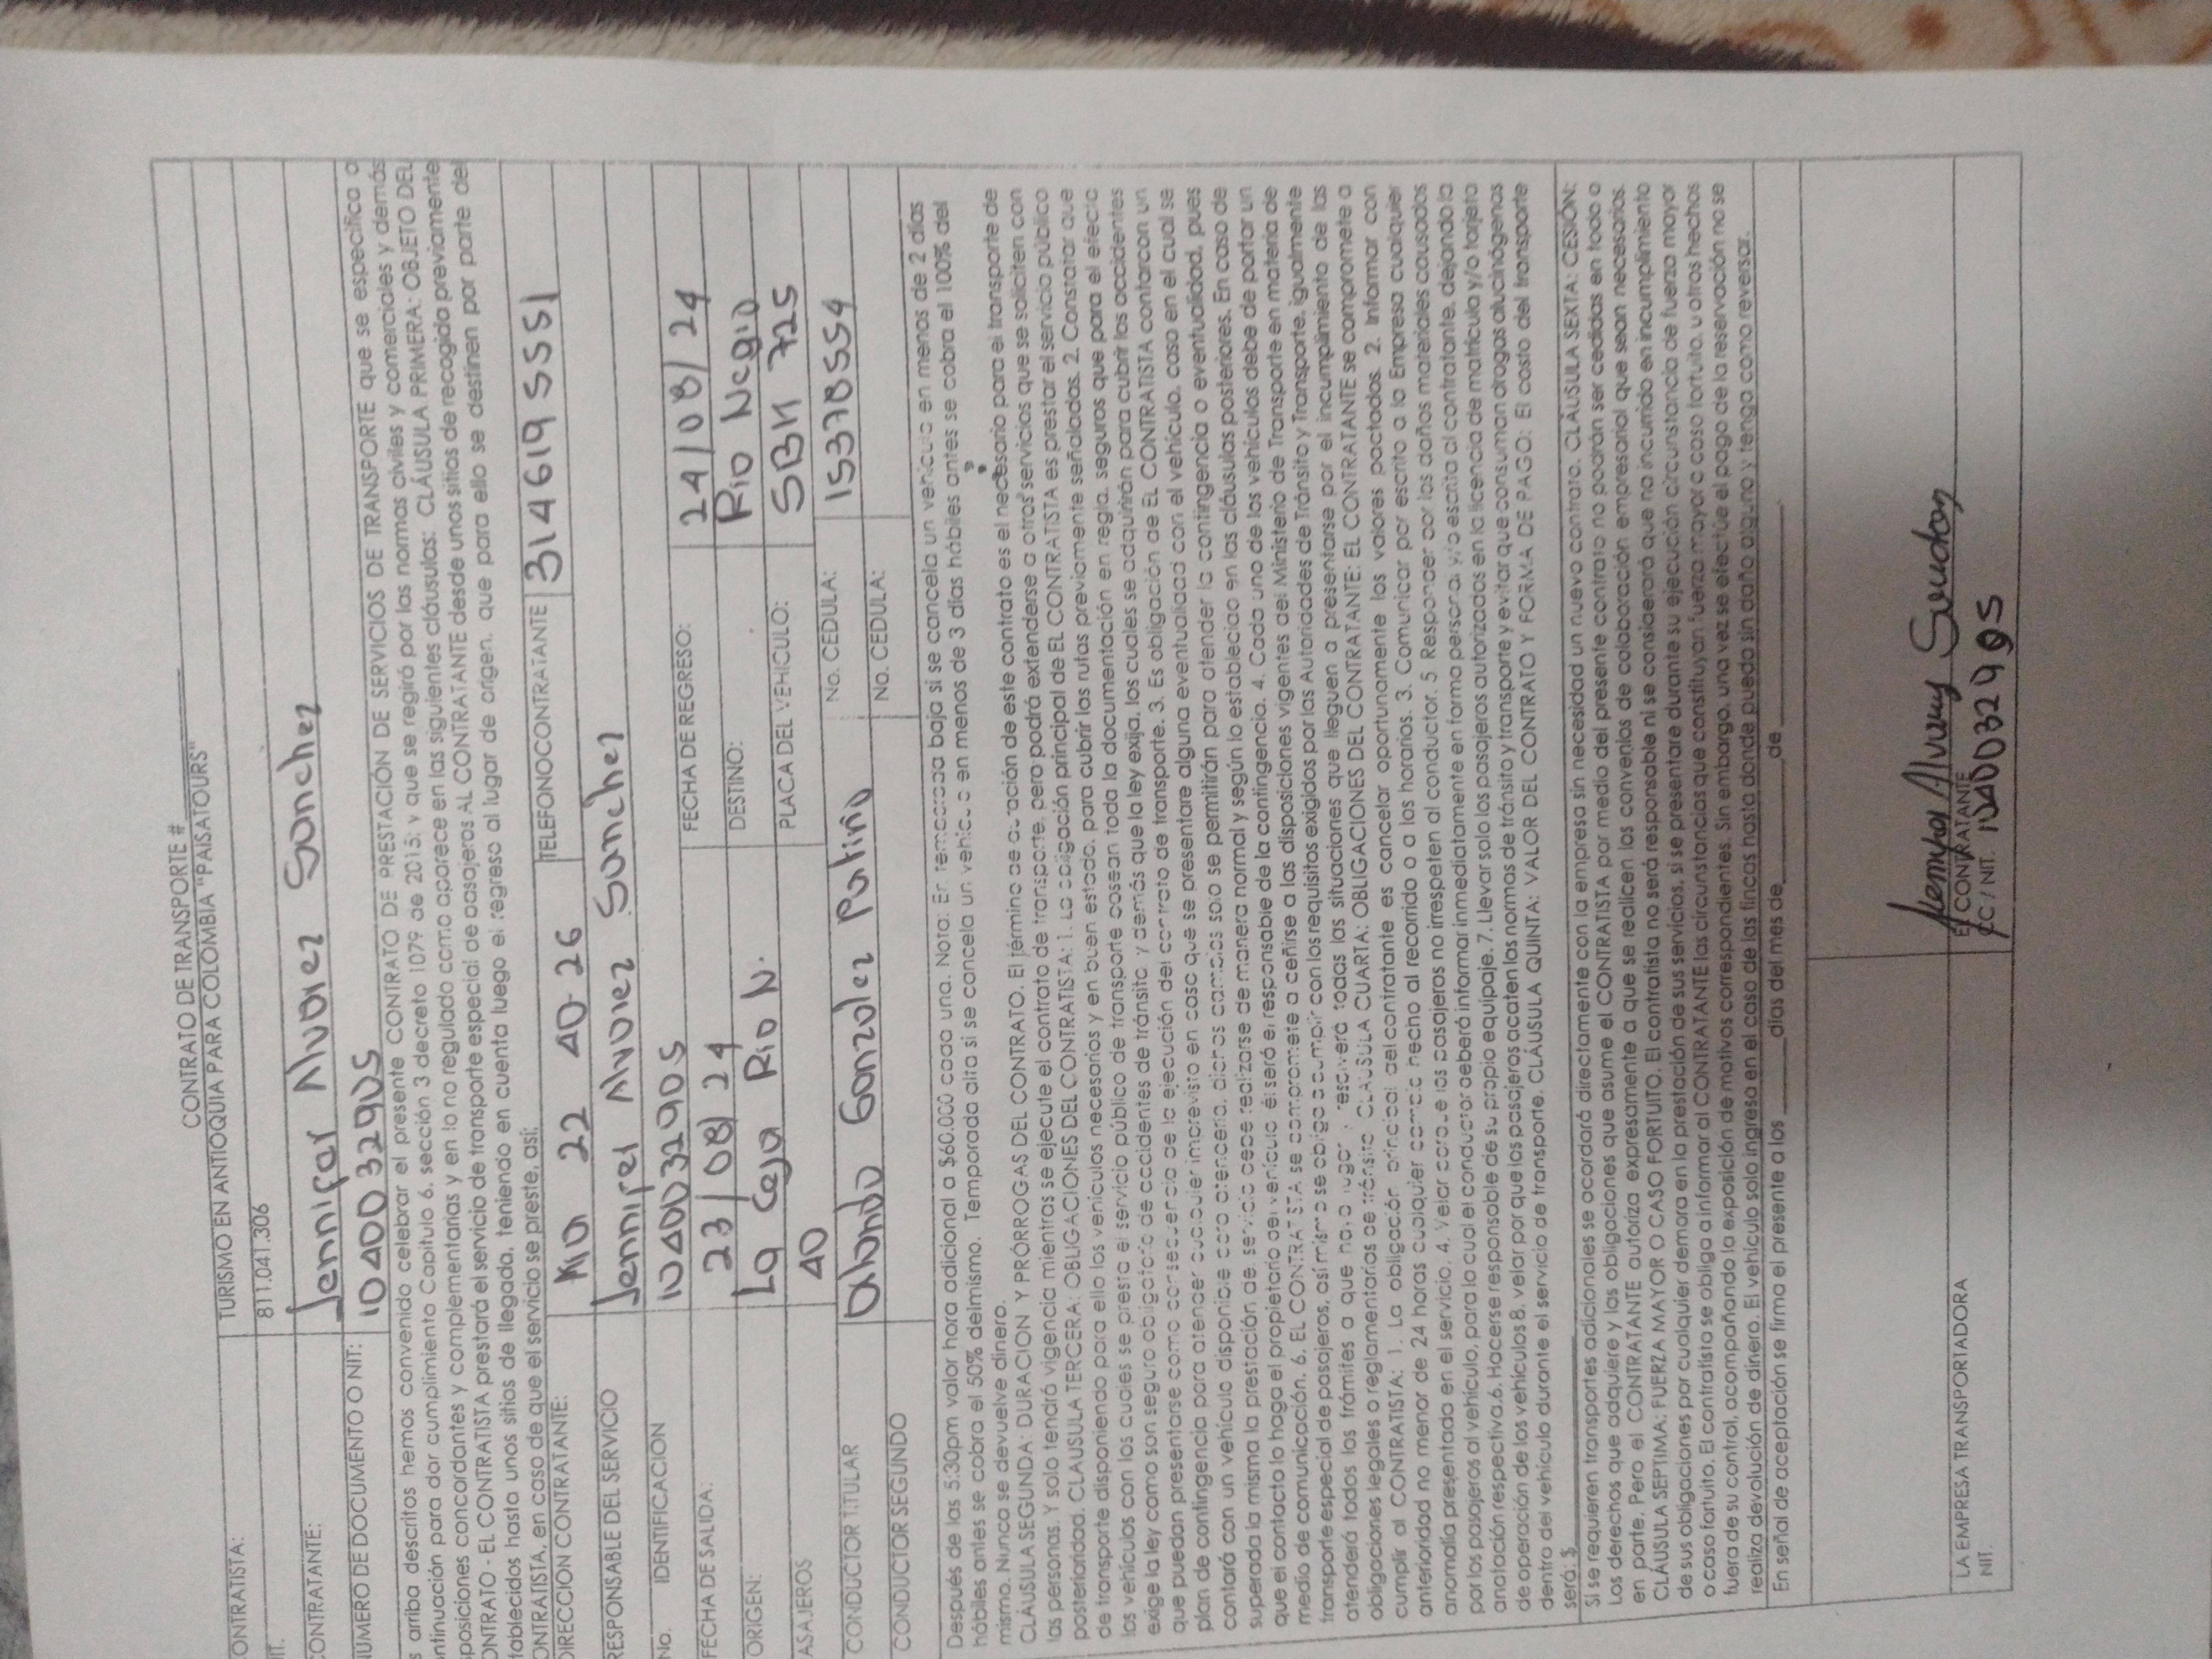 CONTRATO DE TRANSPORTE #
ONTRATISTA: TURISMO EN ANTIOQUIA PARA COLOMBIA "PAISATOURS"
IT. 811.041.306
ONTRATANTE: Jennifer Alvarez Sanchez
NÚMERO DE DOCUMENTO O NIT:
s arriba descritos hemos convenido celebrar el presente CONTRATO DE PRESTACIÓN DE SERVICIOS DE TRANSPORTE que se especifica a
ntinuación para dar cumplimiento Capitulo 6, sección 3 decreto 1079 de 2015; y que se regirá por las normas civiles y comerciales y demás
sposiciones concordantes y complementarias y en lo no regulado como aparece en las siguientes cláusulas: CLÁUSULA PRIMERA: OBJETO DEL
ONTRATO - EL CONTRATISTA prestará el servicio de transporte especial de pasajeros AL CONTRATANTE desde unos sitios de recogida previamente
tablecidos hasta unos sitios de llegada, teniendo en cuenta luego el regreso al lugar de origen, que para ello se destinen por parte del
ONTRATISTA, en caso de que el servicio se preste, así;
DIRECCION CONTRATANTE: 22 40-26 TELEFONOCONTRATANTE 3146195551
RESPONSABLE DEL SERVICIO Jennifer Alvarez Sanchez
No. IDENTIFICACION 1040032905
FECHA DE SALIDA: 23/08/24 FECHA DE REGRESO: 24/08/24
ORIGEN: La Ceja Rio N. DESTINO: Rio Negro
ASAJEROS 40 PLACA DEL VEHICULO: 725
CONDUCTOR TITULAR Gonzalez Patiño No. CEDULA: 15378554
CONDUCTOR SEGUNDO No. CEDULA:
Después de las 5:30pm valor hora adicional a $60.000 cada una. Nota: En temporada baja si se cancela un vehículo en menos de 2 días
hábiles antes se cobra el 50% delmismo. Temporada alta si se concela un vehículo en menos de 3 días hábiles antes se cobra el 100% del
mismo. Nunca se devuelve dinero.
CLÁUSULA SEGUNDA: DURACION Y PRÓRROGAS DEL CONTRATO. El término de duración de este contrato es el necesario para el transporte de
las personas. Y solo tendrá vigencia mientras se ejecute el contrato de transporte, pero podrá extenderse a otros servicios que se soliciten con
posterioridad. CLAUSULA TERCERA: OBLIGACIONES DEL CONTRATISTA: 1. La obligación principal de EL CONTRATISTA es prestar el servicio público
de transporte disponiendo para ello los vehículos necesarios y en buen estado, para cubrir las rutas previamente señaladas. 2. Constatar que
los vehículos con los cuales se presta el servicio público de transporte posean toda la documentación en regla, seguros que para el efecto
exige la ley como son seguro obligatorio de accidentes de tránsito y demás que la ley exija, los cuales se adquirirán para cubrir los accidentes
que puedan presentarse como consecuencia de la ejecución del contrato de transporte. 3. Es obligación de EL CONTRATISTA contarcon un
plan de contingencia para atender cualquier imprevisto en caso que se presentare alguna eventualidad con el vehículo, caso en el cual se
contará con un vehículo disponible para atender la contingencia o eventualidad, pues
superada la misma la prestación de servicio debe realizarse de manera normal y según lo establecido en las cláusulas posteriores. En caso de
que el contacto lo haga el propietario del vehículo él será el responsable de la contingencia. 4. Cada uno de los vehículos debe de portar un
medio de comunicación. 6. EL CONTRATISTA se compromete a ceñirse a las disposiciones vigentes del Ministerio de Transporte en materia de
transporte especial de pasajeros, así mismo se obliga a cumplir con los requisitos exigidos por las Autoridades de Tránsito y Transporte, igualmente
atenderá todos los trámites a que haya lugar y resolverá todas las situaciones que lleguen a presentarse por el incumplimiento de las
obligaciones legales o reglamentarias de tránsito. CLAUSULA CUARTA: OBLIGACIONES DEL CONTRATANTE: EL CONTRATANTE se compromete a
cumplir al CONTRATISTA: 1. La obligación principal del contratante es cancelar oportunamente los valores pactados. 2. Informar con
anterioridad no menor de 24 horas cualquier cambio hecho al recorrido o a los horarios. 3. Comunicar por escrito a la Empresa cualquier
anomalía presentada en el servicio. 4. Velar porque los pasajeros no irrespeten al conductor. 5. Responder por los daños materiales causados
por los pasajeros al vehículo, para lo cual el conductor deberá informar inmediatamente en forma personal y/o escrita al contratante, dejando la
anotación respectiva.6. Hacerse responsable de su propio equipaje. 7. Llevar solo los pasajeros autorizados en la licencia de matricula y/o tarjeta
de operación de los vehículos 8. velar por que los pasajeros acaten las normas de tránsito y transporte y evitar que consuman drogas alucinógenas
dentro del vehículo durante el servicio de transporte. CLÁUSULA QUINTA: VALOR DEL CONTRATO Y FORMA DE PAGO: El costo del transporte
será: $
Si se requieren transportes adicionales se acordará directamente con la empresa sin necesidad un nuevo contrato. CLÁUSULA SEXTA: CESIÓN:
Los derechos que adquiere y las obligaciones que asume el CONTRATISTA por medio del presente contrato no podrán ser cedidas en todo o
en parte. Pero el CONTRATANTE autoriza expresamente a que se realicen los convenios de colaboración empresarial que sean necesarios.
CLÁUSULA SEPTIMA: FUERZA MAYOR O CASO FORTUITO. El contratista no será responsable ni se considerará que ha incurrido en incumplimiento
de sus obligaciones por cualquier demora en la prestación de sus servicios, si se presentare durante su ejecución circunstancia de fuerza mayor
o caso fortuito. El contratista se obliga a informar al CONTRATANTE las circunstancias que constituyan fuerza mayor o caso fortuito, u otros hechos
fuera de su control, acompañando la exposición de motivos correspondientes. Sin embargo, una vez se efectúe el pago de la reservación no se
realiza devolución de dinero. El vehículo solo ingresa en el caso de las fincas hasta donde pueda sin daño alguno y tenga como reversar.
En señal de aceptación se firma el presente a los ______ días del mes de ______ de ______.
LA EMPRESA TRANSPORTADORA
NIT.
EL CONTRATANTE
CC / NIT.